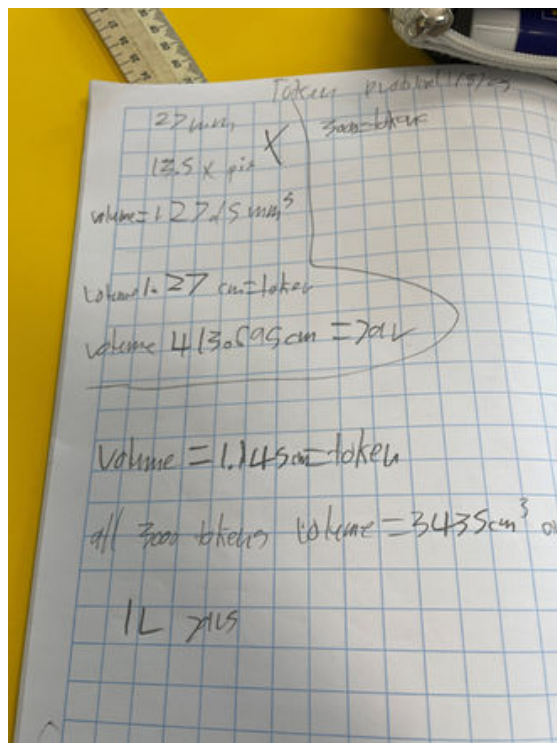 Token
27mm
3000=token
13.5 x pi
volume=1.2715mm³
volume 1.27 cm=token
volume 413.595cm = jar
Volume = 1.145cm=token
all 3000 tokens volume = 3435cm³
1L jars